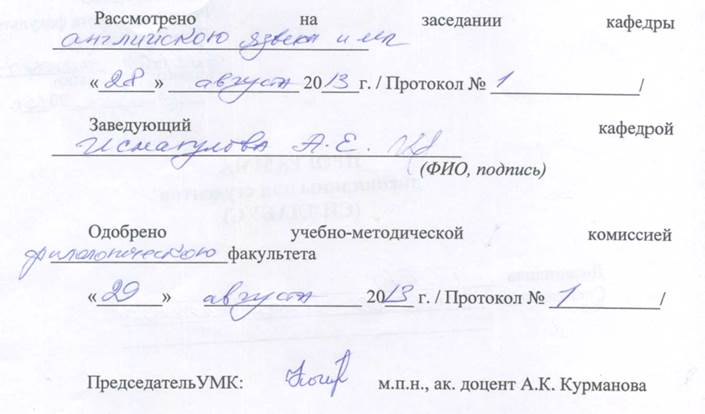 Рассмотрено на заседании кафедры
английского языка и МП
«28» августа 2013 г. / Протокол № 1 /
Заведующий кафедрой
Исмагулова А. Е.
(ФИО, подпись)
Одобрено учебно-методической комиссией
филологического факультета
«29» августа 2013 г. / Протокол № 1 /
ПредседательУМК: м.п.н., ак. доцент А.К. Курманова